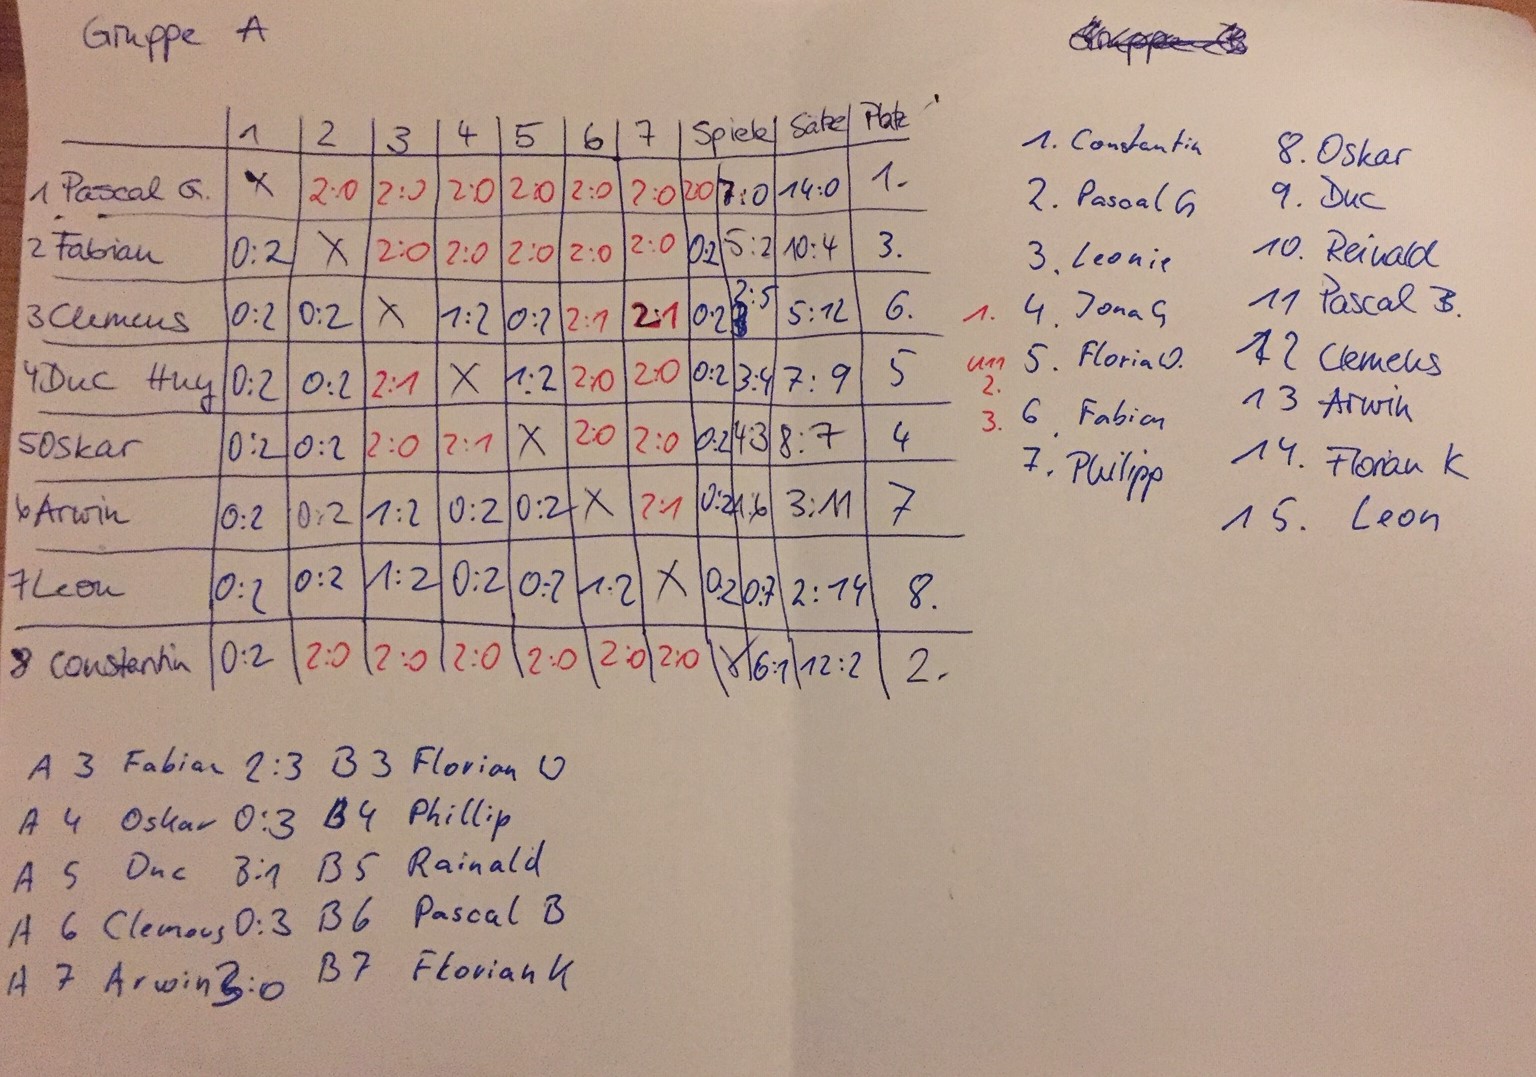 Gruppe A
1 2 3 4 5 6 7 Spiele Sätze Platz
1 Pascal G. X 2:0 2:0 2:0 2:0 2:0 2:0 2:0 7:0 14:0 1.
2 Fabian 0:2 X 2:0 2:0 2:0 2:0 2:0 0:2 5:2 10:4 3.
3 Clemens 0:2 0:2 X 1:2 0:2 2:1 2:1 0:2 2:5 5:12 6.
4 Duc Huy 0:2 0:2 2:1 X 1:2 2:0 2:0 0:2 3:4 7:9 5
5 Oskar 0:2 0:2 2:0 2:1 X 2:0 2:0 0:2 4:3 8:7 4
6 Arwin 0:2 0:2 1:2 0:2 0:2 X 2:1 0:2 1:6 3:11 7
7 Leon 0:2 0:2 1:2 0:2 0:2 1:2 X 0:2 0:7 2:14 8.
8 Constantin 0:2 2:0 2:0 2:0 2:0 2:0 2:0 X 6:1 12:2 2.
A 3 Fabian 2:3 B 3 Florian O
A 4 Oskar 0:3 B 4 Phillip
A 5 Duc 3:1 B 5 Rainald
A 6 Clemens 0:3 B 6 Pascal B
A 7 Arwin 3:0 B 7 Florian K
1. Constantin
2. Pascal G
3. Leonie
1. 4. Jona G
U11 2. 5. Floria O.
3. 6. Fabian
7. Philipp
8. Oskar
9. Duc
10. Reinald
11 Pascal B.
12 Clemens
13 Arwin
14. Florian K
15. Leon